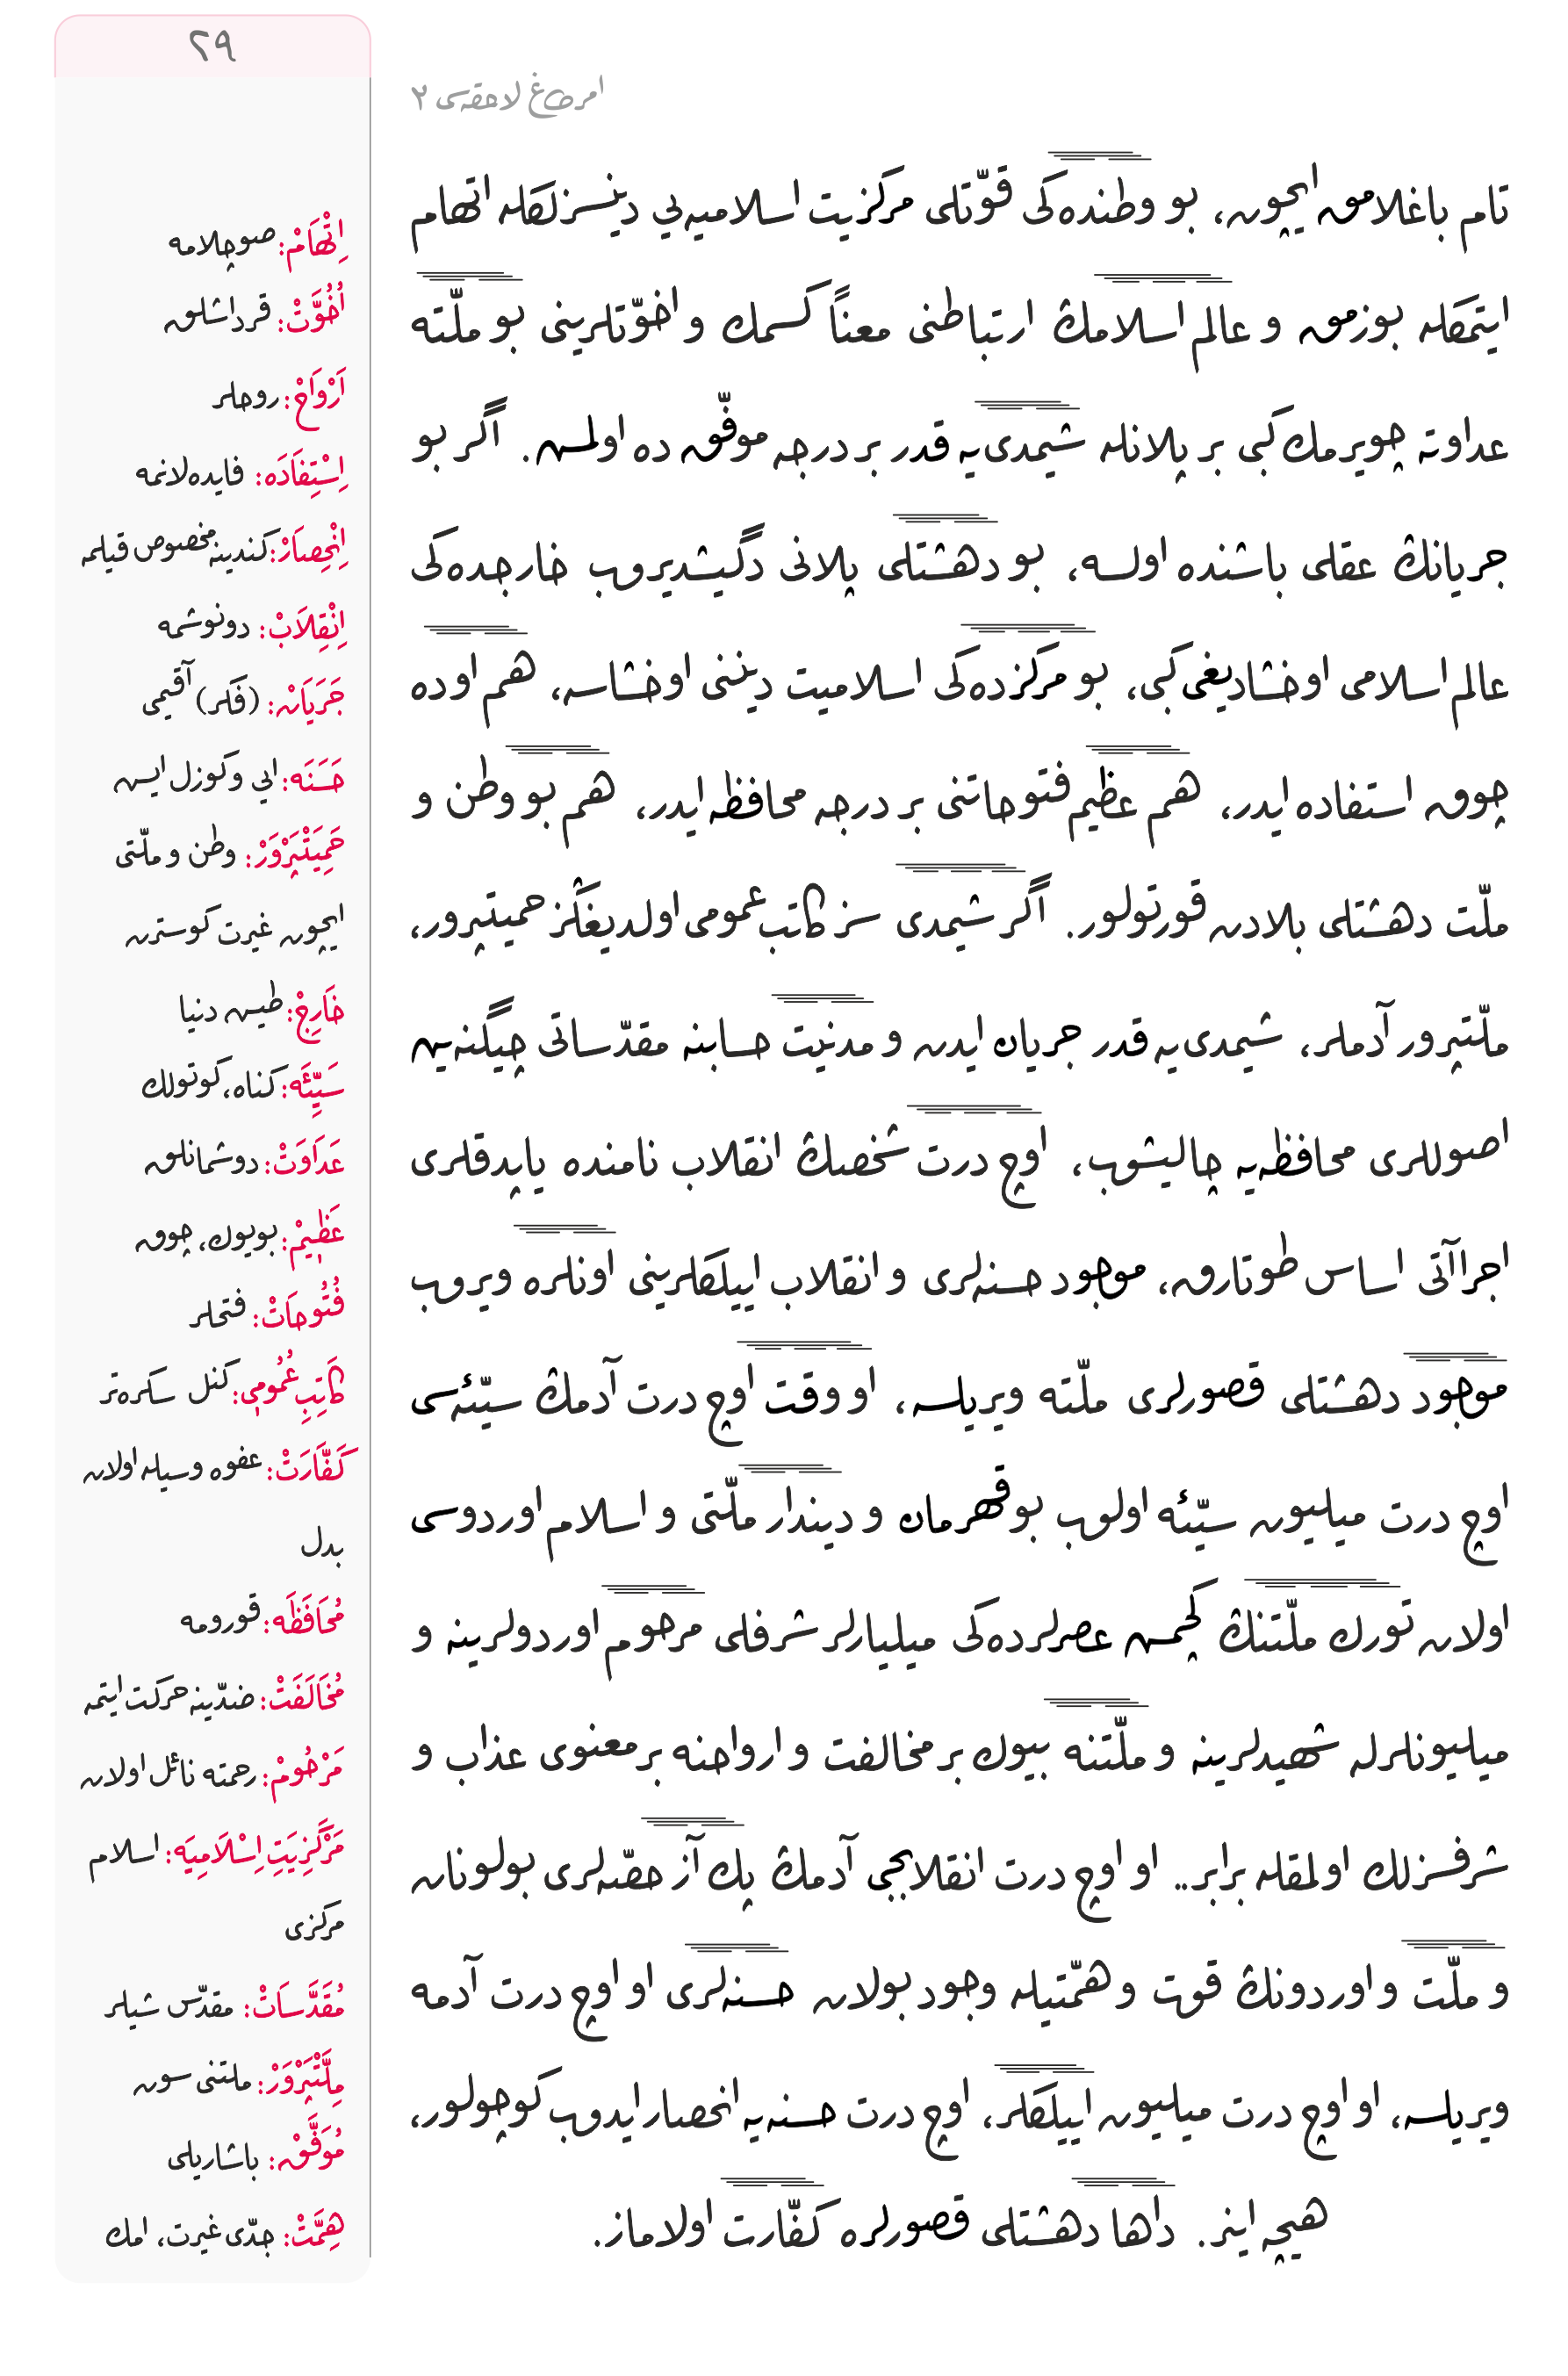 ٢٩
امرطاغ لاحقه‌سی ٢
تام باغلامق ایچون، بو وطنده‌كی قوّتلی مركزیت اسلامیه‌یی دینسزلكله اتهام
ایتمكله بوزمق و عالم اسلامڭ ارتباطنی معناً كسمك و اخوّتلرینی بو ملّته
عداوته چویرمك كبی بر پلانله شیمدی‌یه قدر بر درجه موفّق ده اولمش. اگر بو
جریانڭ عقلی باشنده اولسه، بو دهشتلی پلانی دگیشدیروب خارجده‌كی
عالم اسلامی اوخشادیغی كبی، بو مركزده‌كی اسلامیت دیننی اوخشاسه، هم او ده
چوق استفاده ایدر، هم عظیم فتوحاتنی بر درجه محافظه ایدر، هم بو وطن و
ملّت دهشتلی بلادن قورتولور. اگر شیمدی سز كاتب عمومی اولدیغڭز حمیتپرور،
ملّتپرور آدملر، شیمدی‌یه قدر جریان ایدن و مدنیت حسابنه مقدّساتی چیگنه‌ین
اصوللری محافظه‌یه چالیشوب، اوچ درت شخصڭ انقلاب نامنده یاپدقلری
اجراآتی اساس طوتارق، موجود حسنه‌لری و انقلاب اییلكلرینی اونلره ویروب
موجود دهشتلی قصورلری ملّته ویریلسه، او وقت اوچ درت آدمڭ سیّئه‌سی
اوچ درت میلیون سیّئه اولوب بو قهرمان و دیندار ملّتی و اسلام اوردوسی
اولان تورك ملّتنڭ كچمش عصرلرده‌كی میلیارلر شرفلی مرحوم اوردولرینه و
میلیونلرله شهیدلرینه و ملّتنه بیوك بر مخالفت و ارواحنه بر معنوی عذاب و
شرفسزلك اولمقله برابر.. او اوچ درت انقلابجی آدمڭ پك آز حصّه‌لری بولونان
و ملّت و اوردونڭ قوت و همّتیله وجود بولان حسنه‌لری او اوچ درت آدمه
ویریلسه، او اوچ درت میلیون اییلكلر، اوچ درت حسنه‌یه انحصار ایدوب كوچولور،
هیچه اینر. داها دهشتلی قصورلره كفّارت اولاماز.
اِتِّهَامْ: صوچلامه
اُخُوَّتْ: قرداشلق
اَرْوَاحْ: روحلر
اِسْتِفَادَه: فایده‌لانمه
اِنْحِصَارْ: كندینه مخصوص قیلمه
اِنْقِلَابْ: دونوشمه
جَرَيَانْ: (فكر) آقیمی
حَسَنَه: ایی و كوزل ایش
حَمِيَتْپَرْوَرْ: وطن و ملّتی
ایچون غیرت كوسترن
خَارِجْ: طیش دنیا
سَيِّئَه: كناه، كوتولك
عَدَاوَتْ: دوشمانلق
عَظِيمْ: بویوك، چوق
فُتُوحَاتْ: فتحلر
كَاتِبِ عُمُومِي: كنل سكره‌تر
كَفَّارَتْ: عفوه وسیله اولان
بدل
مُحَافَظَه: قورومه
مُخَالَفَتْ: ضدّینه حركت ایتمه
مَرْحُومْ: رحمته نائل اولان
مَرْكَزِيَتِ اِسْلَامِيَه: اسلام
مركزی
مُقَدَّسَاتْ: مقدّس شیلر
مِلَّتْپَرْوَرْ: ملتنی سون
مُوَفَّقْ: باشاریلی
هِمَّتْ: جدّی غیرت، امك